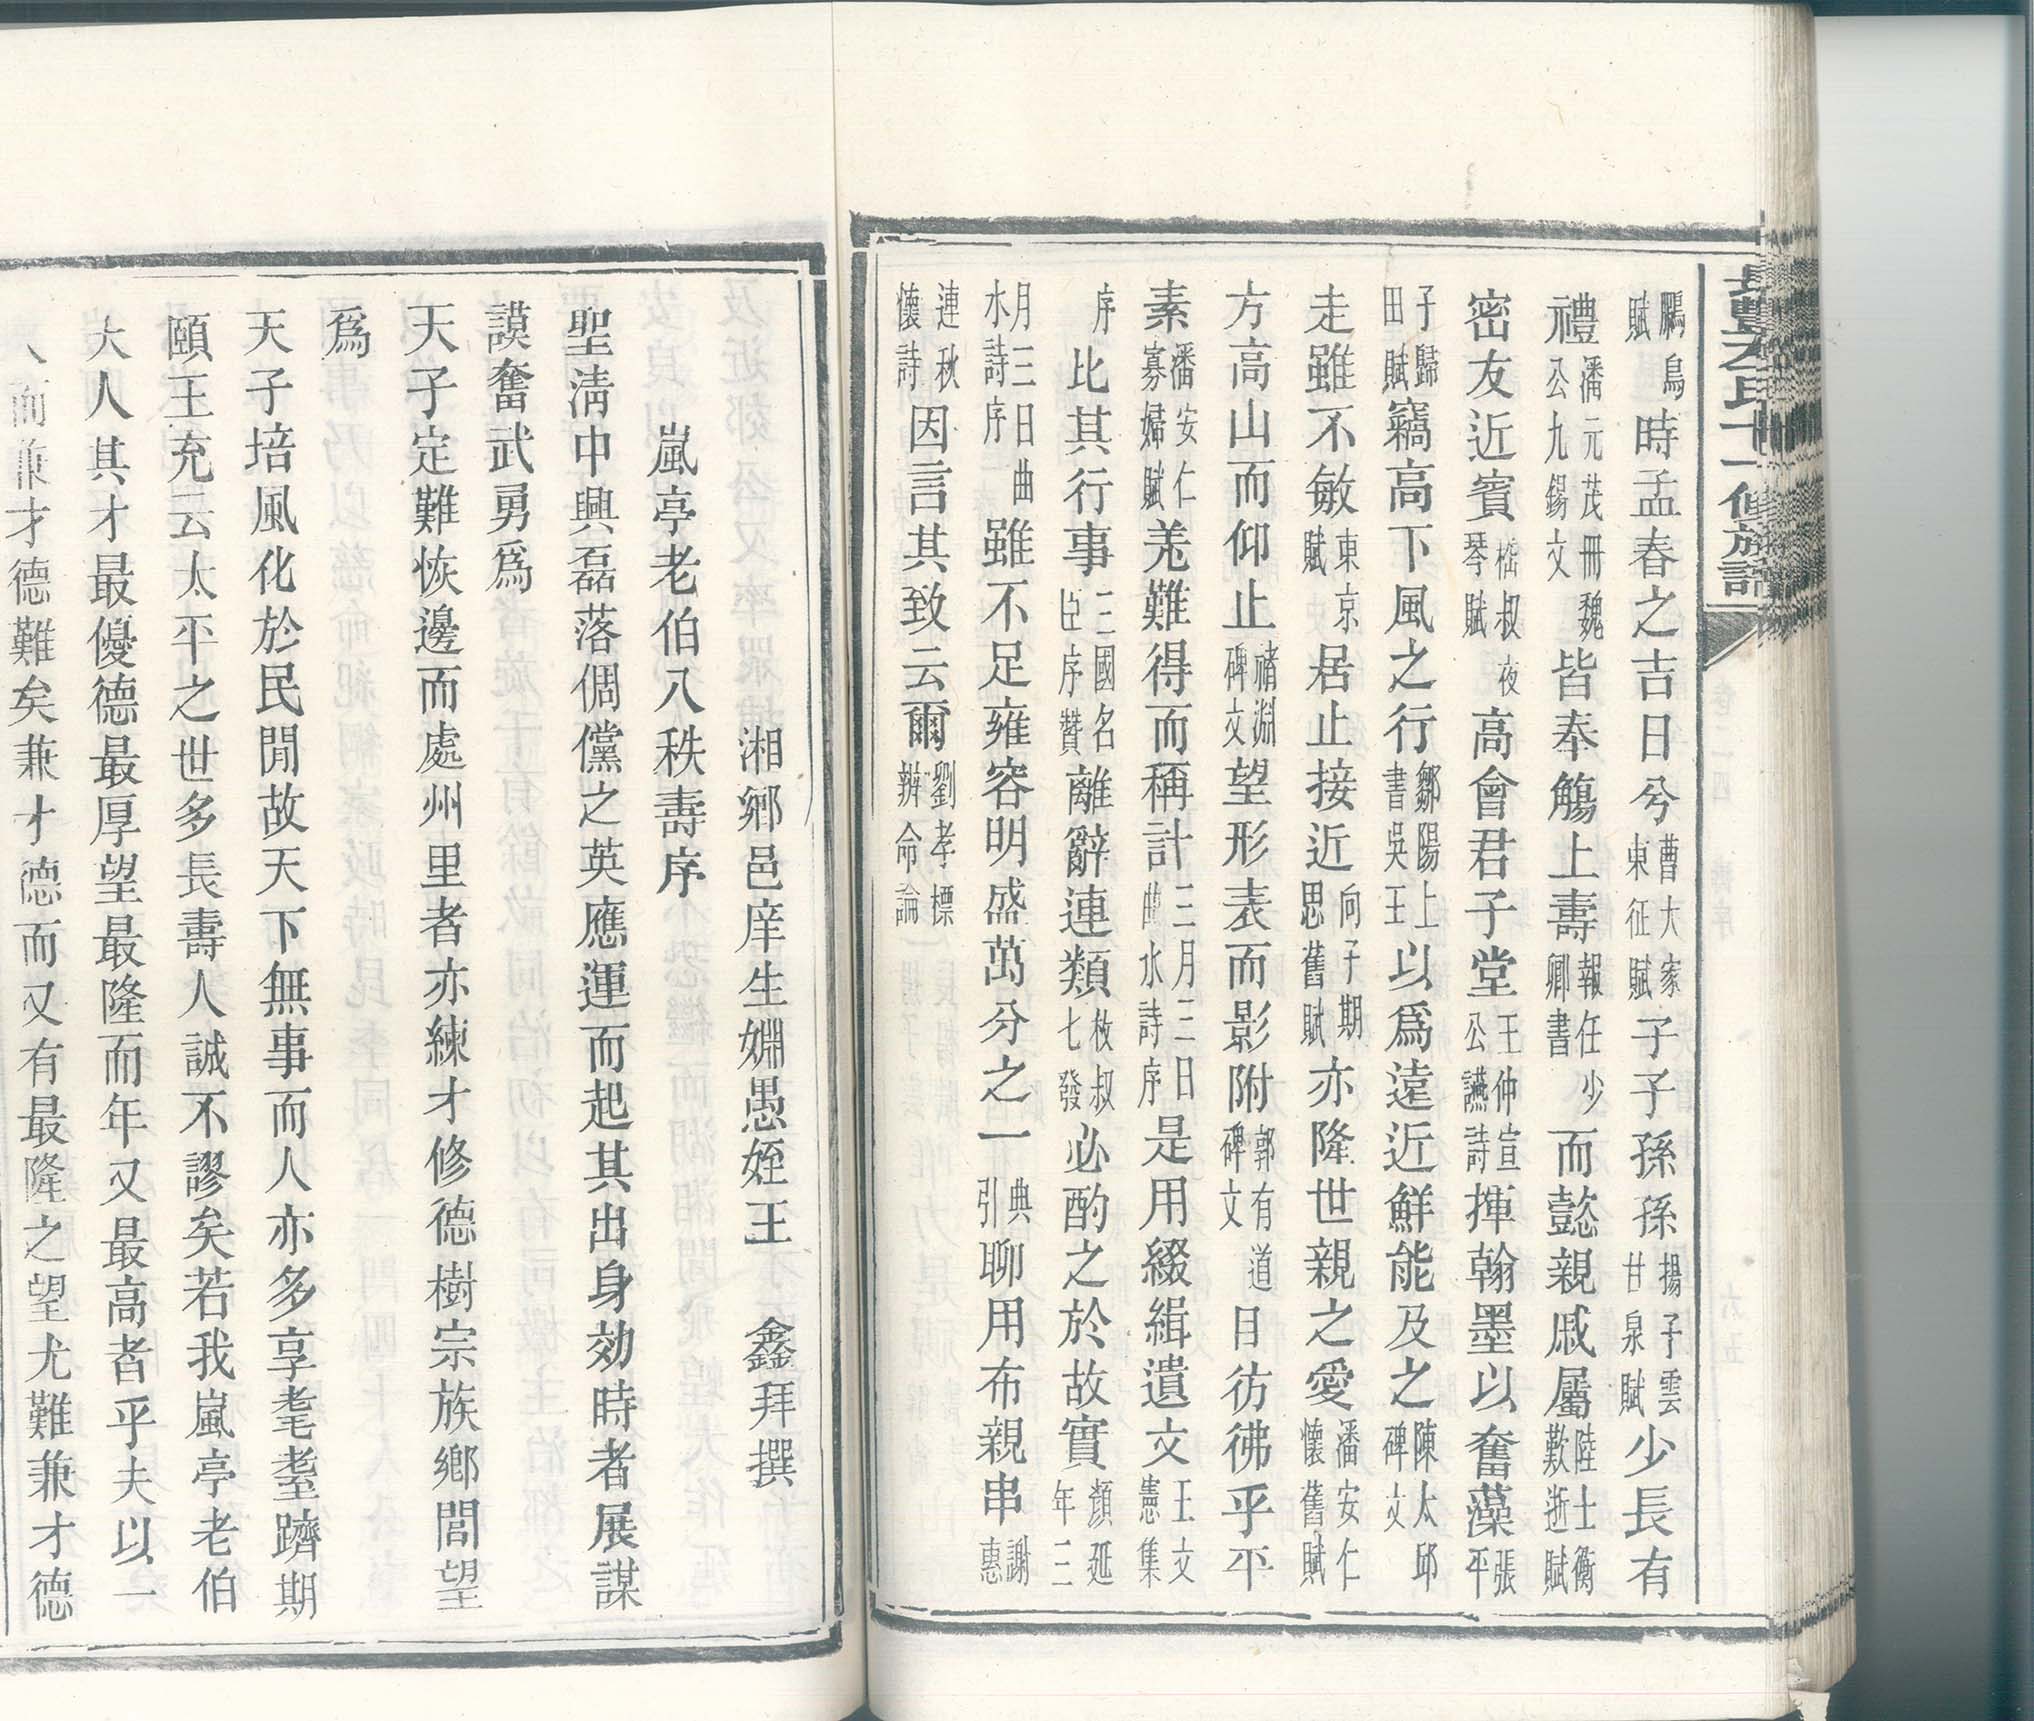 左氏十一修族譜
鵬鳥賦時孟春之吉日兮曹大家東征賦子子孫孫揚子雲甘泉賦少長有
禮潘元茂冊魏公九錫文皆奉觴上壽報任少卿書而懿親戚屬陸士衡歎逝賦
密友近賓嵇叔夜琴賦高會君子堂王仲宣公讌詩揮翰墨以奮藻張平
子歸田賦竊高下風之行鄒陽上書吳王以爲遠近鮮能及之陳太邱碑文
走雖不敏東京賦居止接近向子期思舊賦亦隆世親之愛潘安仁懷舊賦
方高山而仰止禇淵碑文望形表而影附郭有道碑文日彷彿乎平
素潘安仁寡婦賦羌難得而稱計三月三日曲水詩序是用綴緝遺文王文憲集
序比其行事三國名臣序贊離辭連類枚叔七發必酌之於故實顏延年三
月三日曲水詩序雖不足雍容明盛萬分之一典引聊用布親串謝惠
連秋懷詩因言其致云爾劉孝標辨命論
湘鄉邑庠生婣愚姪王　鑫拜撰
嵐亭老伯八秩壽序
聖淸中興磊落倜儻之英應運而起其出身効時者展謀
謨奮武勇爲
天子定難恢邊而處州里者亦練才修德樹宗族鄉閭望
爲
天子培風化於民閒故天下無事而人亦多享耄耋躋期
頤王充云太平之世多長壽人誠不謬矣若我嵐亭老伯
大人其才最優德最厚望最隆而年又最高者乎夫以一
人而兼才德難矣兼才德而又有最隆之望尤難兼才德